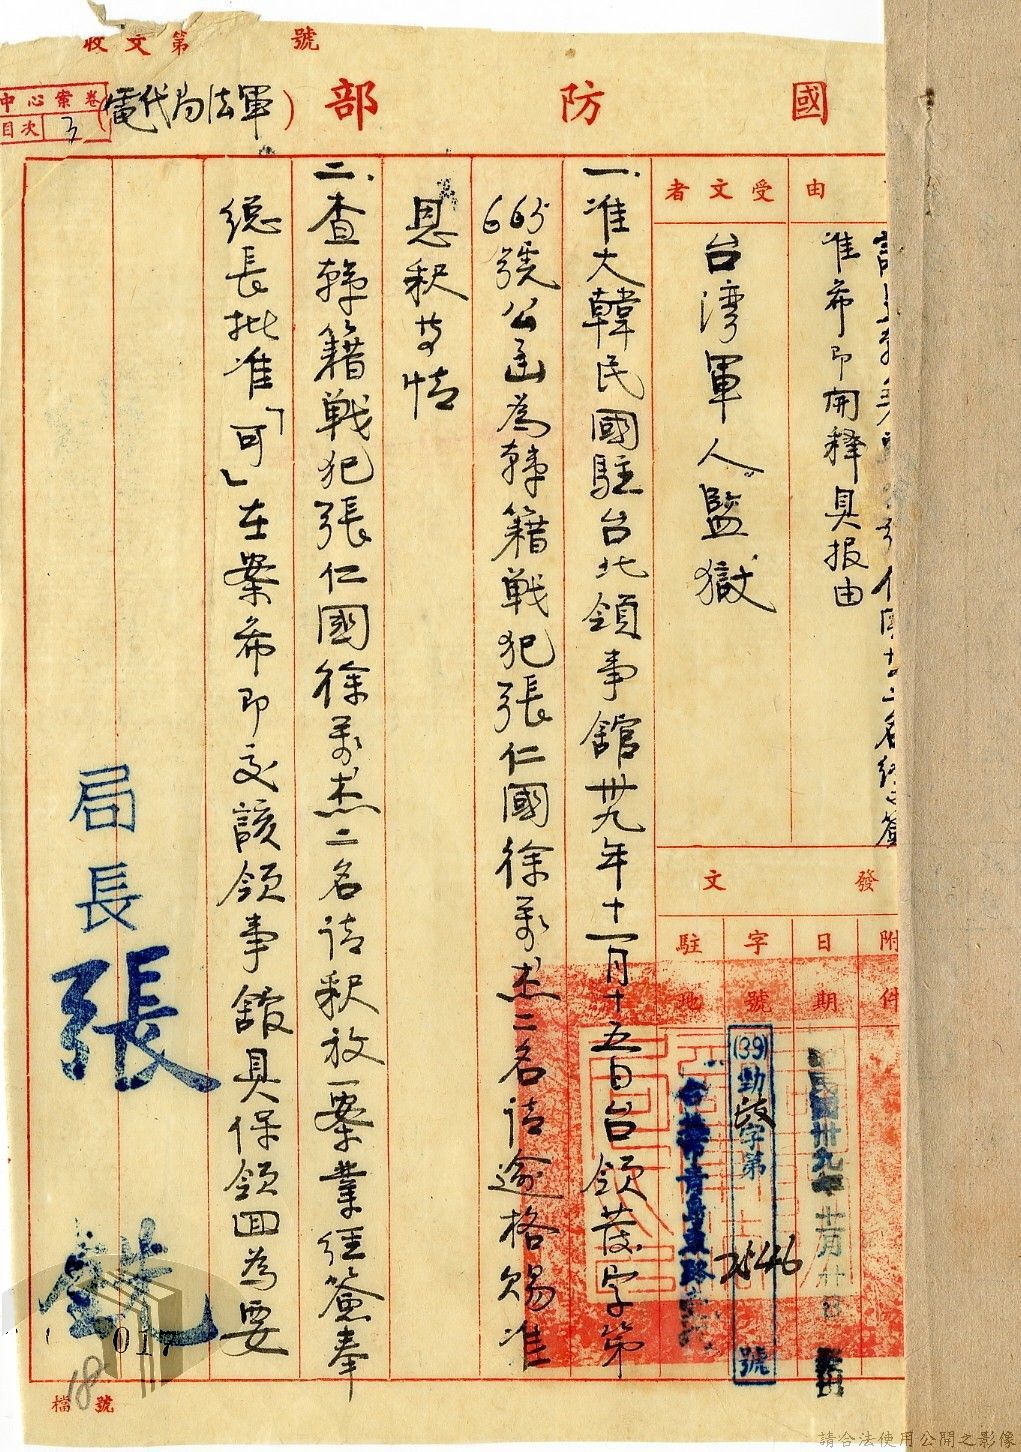 收文第 號
國防部
(電代局法軍)
中心案卷
目次 3
由
准希即開釋具报由
受文者
台湾軍人監獄
發文
附件
日期
字號
駐地
(39)勁 字第 25446 號
一、准大韓民國駐台北領事館卅九年十一月十五日台領發字第
665號公函為韓籍戰犯張仁國徐万杰二名请逾格賜准
恩釈等情
二、查韓籍戰犯張仁國徐万杰二名请釈放一案業经簽奉
總長批准「可」在案希即交該領事館具保領回為要
局長
張
017
檔號
請合法使用公開之影像